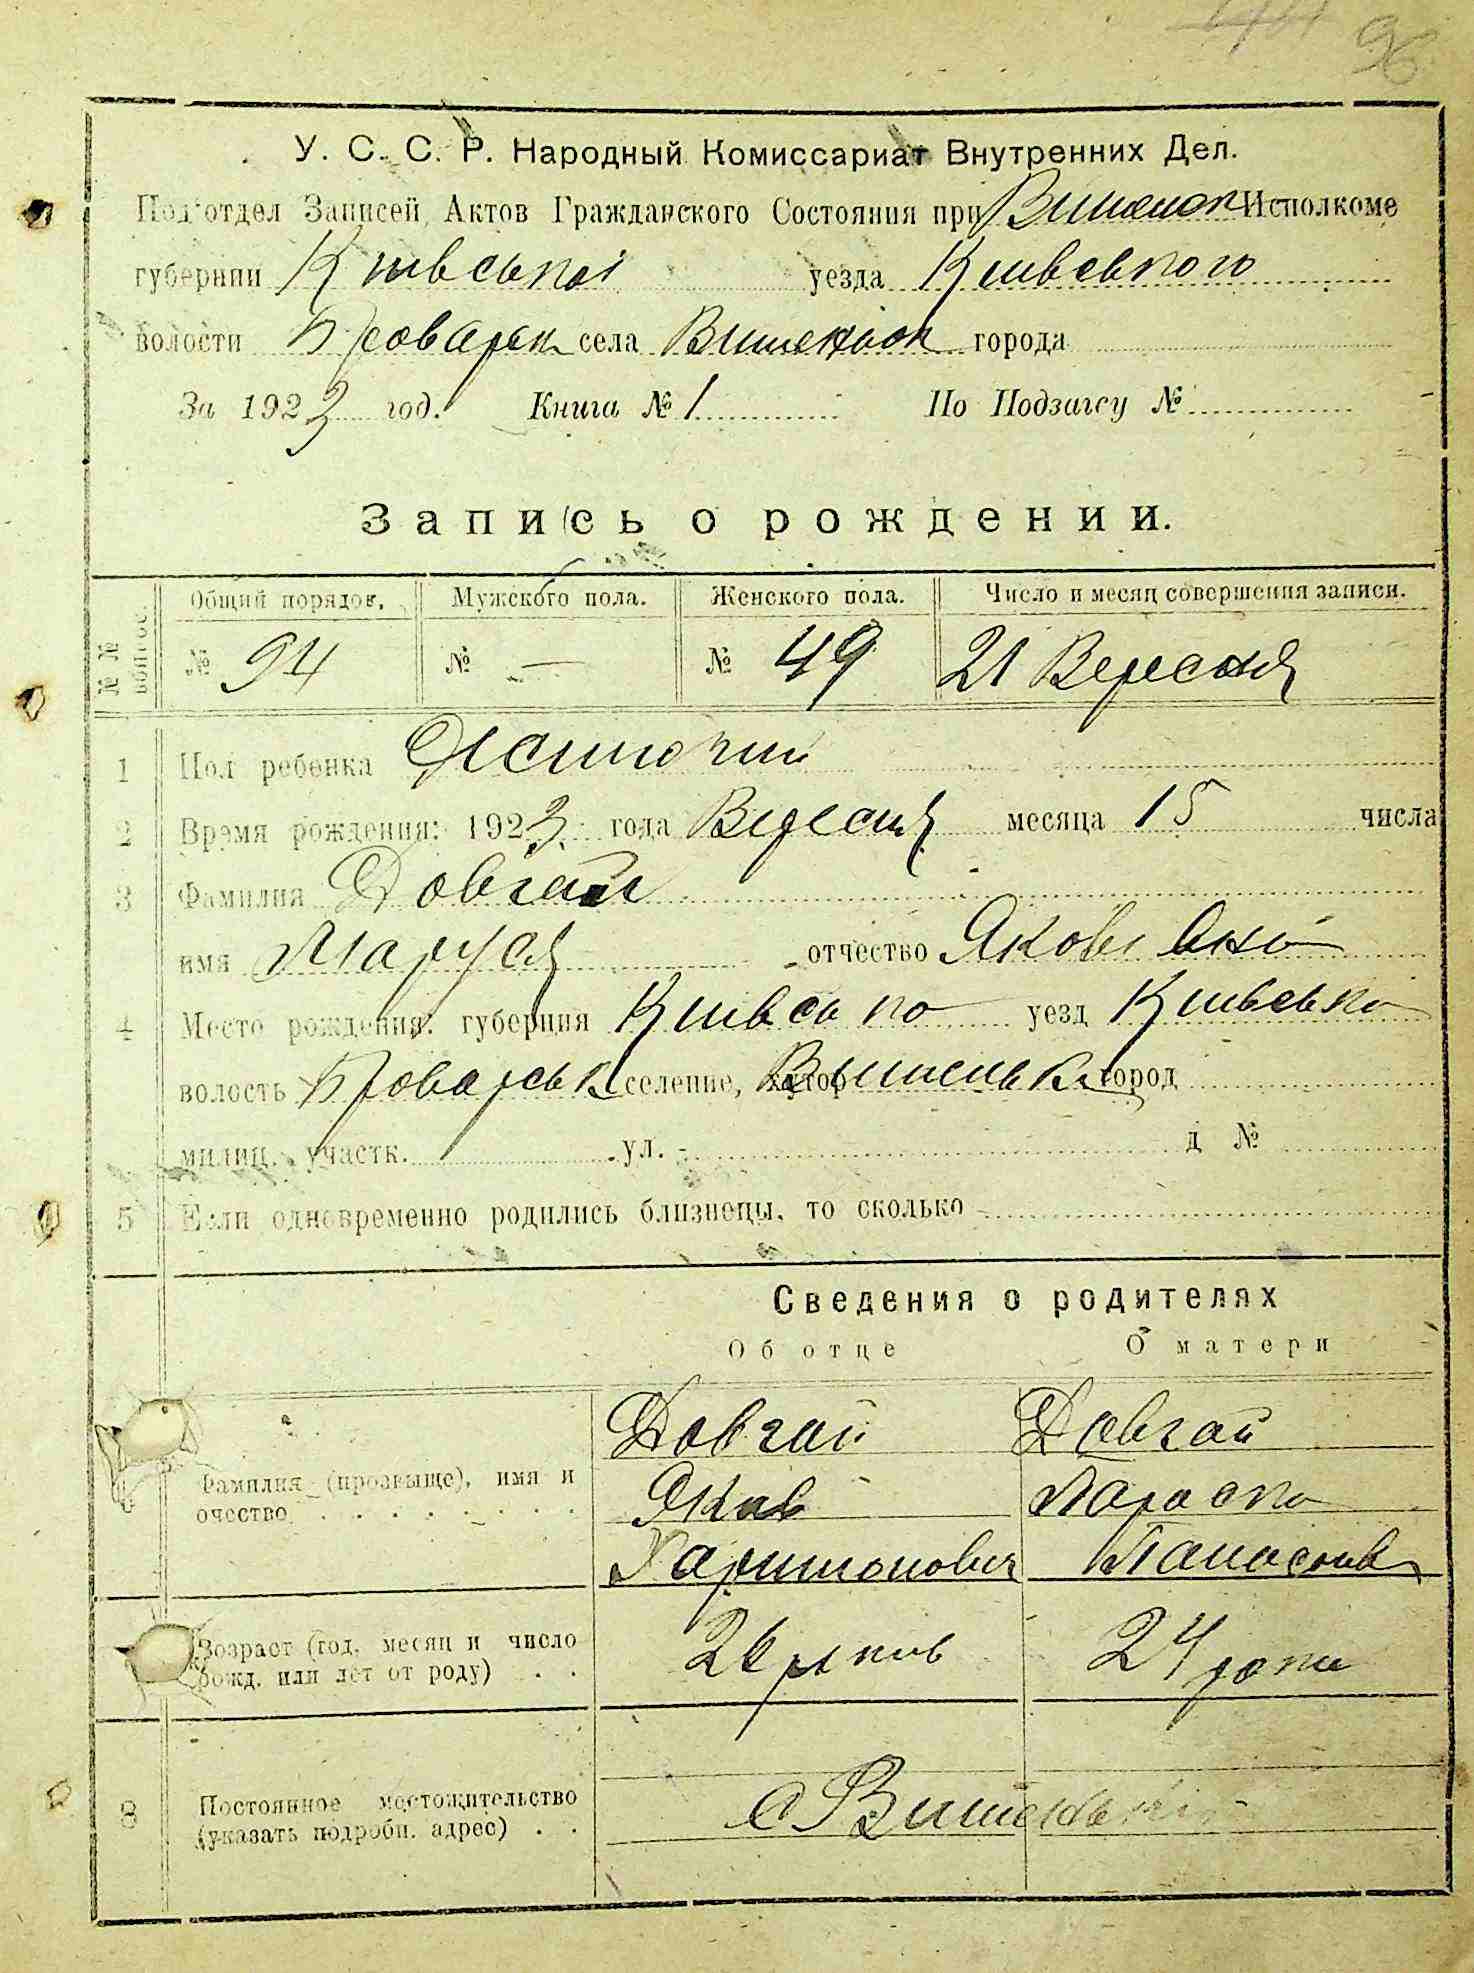 96
У. С. С. Р. Народный Комиссариат Внутренних Дел.
Под'отдел Записей Актов Гражданского Состояния при Вишеньок Исполкоме
губернии Київської уезда Київського
волости Броварськ села Вишеньок города
За 1923 год. Книга № 1 По Подзагсу №
Запись о рождении.
№ № Общий порядок. Мужского пола. Женского пола. Число и месяц совершения записи.
№ 94 № — № 49 21 Вересня
1 Пол ребенка Жиночий
2 Время рождения: 1923 года Вересня месяца 15 числа
3 Фамилия Довгай
имя Маруся отчество Яковівна
4 Место рождения: губерния Київсько уезд Київсько
волость Броварськ селение, хутор Вишеньки город
милиц. участк. ул. д №
5 Если одновременно родились близнецы, то сколько
Сведения о родителях
Об отце О матери
Довгай Довгай
Фамилия (прозвыще), имя и Яків Параска
очество Харитонович Панасівна
Возраст (год, месяц и число 26 років 24 роки
рожд. или лет от роду)
8 Постоянное местожительство с Вишеньки
(указать подробн. адрес)